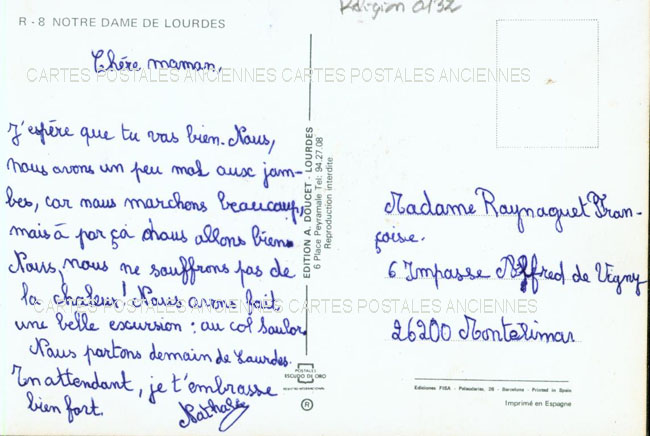 R - 8 NOTRE DAME DE LOURDES
Religion 0132
Chére maman,
CARTES POSTALES ANCIENNES CARTES POSTALES ANCIENNES
J'espére que tu vas bien. Nous,
nous avons un peu mal aux jam-
bes, car nous marchons beaucoup,
mais à par ça nous allons bien.
Nous, nous ne souffrons pas de
la chaleur! Nous avons fait
une belle excursion : au col Soulor.
Nous partons demain de Lourdes.
En attendant, je t'embrasse
bien fort.
Nathalie
EDITION A. DOUCET - LOURDES
6 Place Peyramale Tel: 94.27.08
Reproduction interdite
Madame Raynaguet Fran-
çoise.
6 Impasse Alfred de Vigny
CARTES POSTALES ANCIENNES CARTES POSTALES ANCIENNES
26200 Montélimar
POSTALES
ESCUDO DE ORO
R
Ediciones FISA - Palaudarias, 26 - Barcelona - Printed in Spain
Imprimé en Espagne